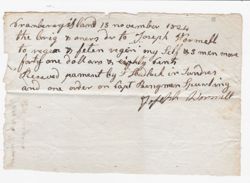 Cranberry Island 13 november 1824
the brig & oners dr to Joseph Wormell
to regin & feten regen my Self & 3 men more
forty one dollars & eighty Sints
Received pament by S Hadlock in Sundres
and one order on Capt Benjmen Spurling
Joseph Wormell